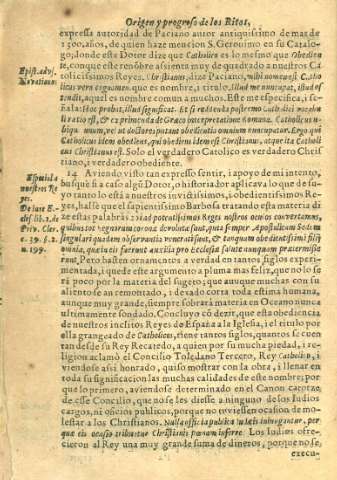 Origen y progreso de los Ritos,
expressa autoridad de Paciano autor antiquissimo de mas de
1300. años, de quien haze mencion S. Geronimo en su Catalo-
go, donde este Dotor dize que Catholico es lo mesmo que Obedie-
te, conque este renõbre assienta muy de quadrado a nuestros Ca
tolicissimos Reyes. Christianus, dize Paciano, mihi nomen est Catho
licus vero cognomen. que es nombre, i titulo. Illud me nuncupat, istud os
tendit, aquel es nombre comun a muchos. Este me especifica, i se-
ñala: Hoc probat, illud significat. Et si reddenda postremo Catholici vocabu
li ratio est, & ex princ[ ] de Græco interpretatione Romana. Catholicus
ubique unum, vel ut doctores putant obedientia omnium nuncupatur. Ergo qui
Catholicus idem obediens, qui obediens idem est Christianus, atque ita Catholi
cus Christianus est. Solo el verdadero Catolico es verdadero Chris
tiano, i verdadero obediente.
Epist. adv.
Novatianu.
14 Aviendo visto tan expresso sentir, i apoyo de mi intento,
busquè si a caso algũ Dotor, o historiador aplicava lo que de su-
yo tanto lo està a nuestros invictissimos, i obedientissimos Re-
yes, hallè que el sapientissimo Barbosa tratando esta materia di
ze estas palabras: potentissimos Reges nostros oculos convertamus,
quibus tot regnorum corona devoluta sunt, quia semper Apostolicam Sedem
singulari quadam observantia venerati sunt, & tanquam obedientissimi filij
omnia, quæ eis fuerunt auxilio pro Ecclesia salute nunquam prætermisse
runt. Pero basten ornamentos a verdad en tantos siglos experi-
mentada, i quede este argumento a pluma mas feliz, que no lo se
rà poco por la materia del sugeto; que aunque muchas con su
aliento se an remontado, i devado corta toda estima humana,
aunque muy grande, siempre sobrarà materia en Oceano nunca
ultimamente sondado. Concluyo cõ dezir, que esta obediencia
de nuestros inclitos Reyes de España a la Iglesia, i el titulo por
ella grangeado de Catholicos, tiene tantos siglos, quantos se cuen
tan desde su Rey Recaredo, a quien por su mucha piedad, i re-
ligion aclamò el Concilio Toledano Tercero, Rey Catholico, i
viendose assi honrado, quiso mostrar con la obra, i llenar en
toda su significacion las muchas calidades de este nombre; por
que lo primero, aviendose determinado en el Canon catorze
de esse Concilio, que no se les diesse a ninguno de los Iudios
cargos, ni oficios publicos, porque no tuviessen ocasion de mo-
lestar a los Christianos. Nulla officia publica Iudæis iniungantur, per
quæ eis occasio tribuatur Christianis pœnam inferre. Los Iudios ofre-
cieron al Rey una muy grande suma de dineros, porque no se
execu-
Españolas
nuestros Re
yes.
c. 39. §. 2.
n. 199.